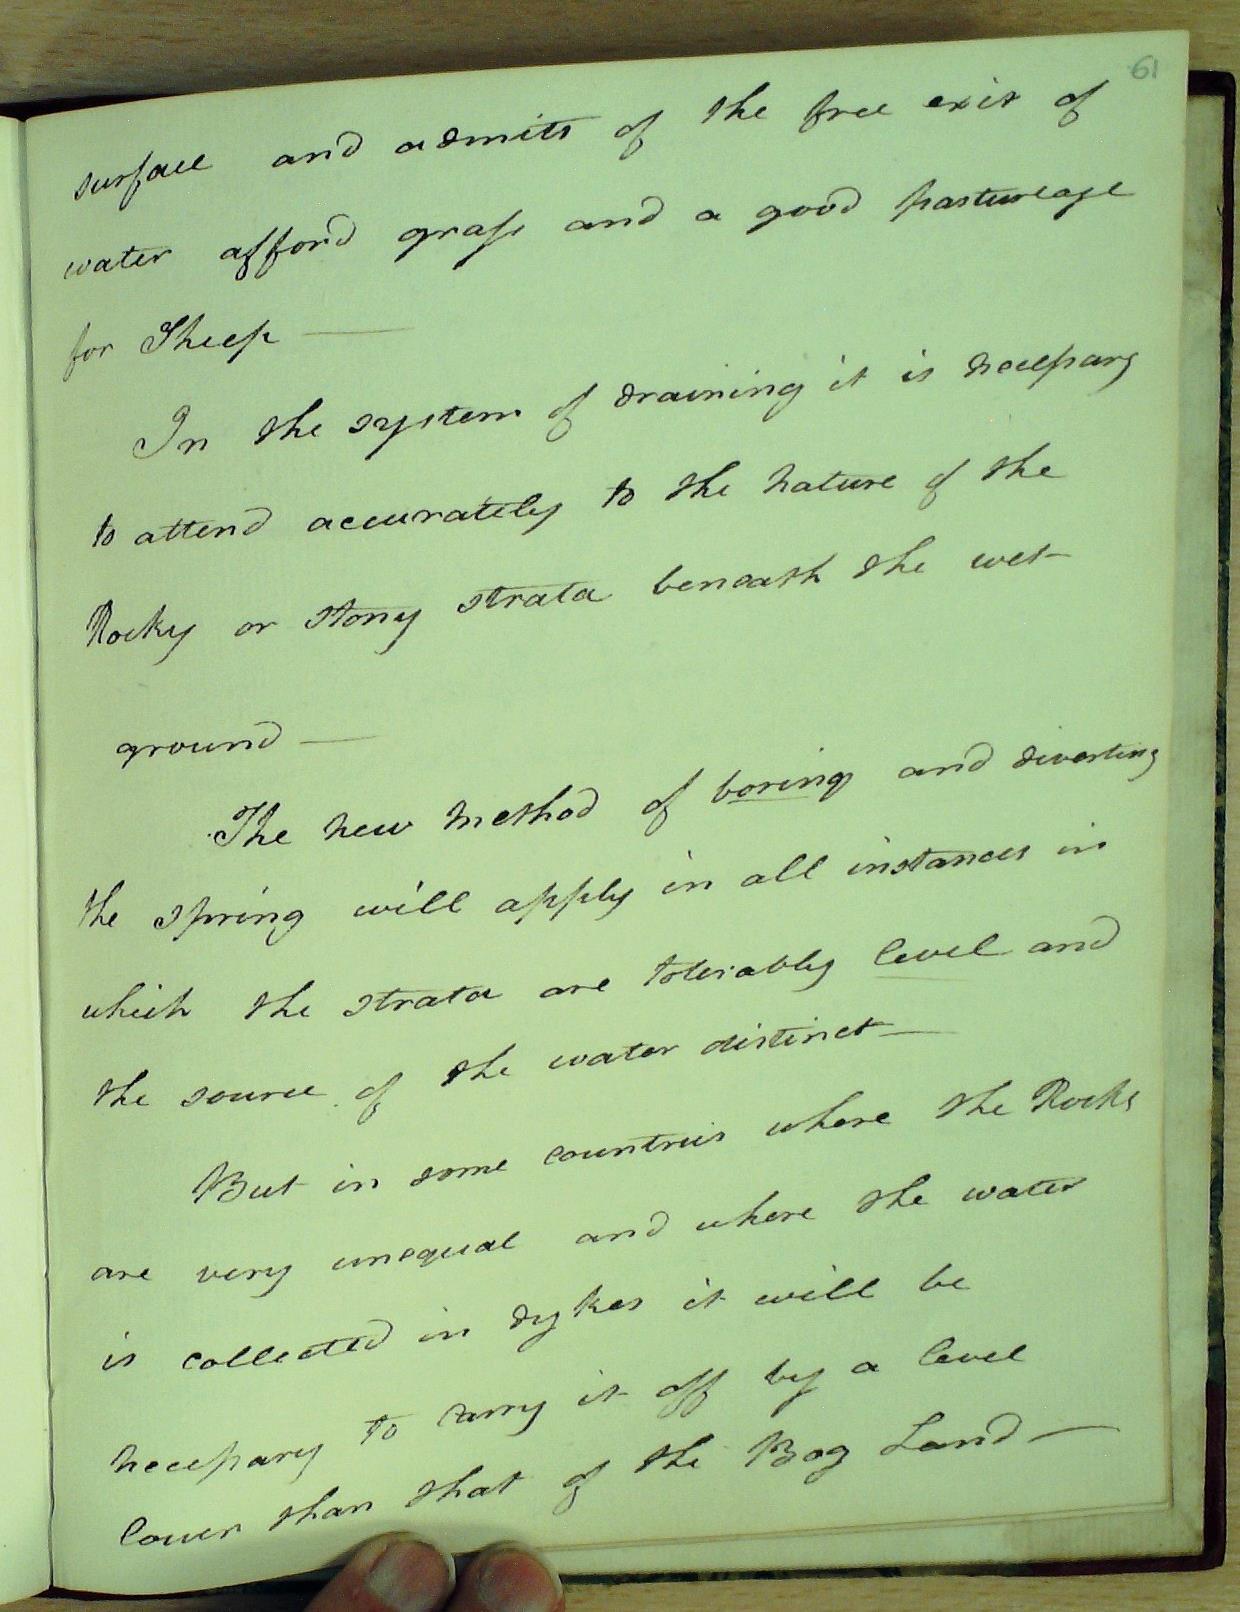 61
surface and admits of the free exit of
water afford grass and a good pastureage
for Sheep —
In the system of draining it is necessary
to attend accurately to the nature of the
Rocky or stony strata beneath the wet
ground —
The new method of boring and diverting
the spring will apply in all instances in
which the strata are tolerably level and
the source of the water distinct —
But in some countries where the Rocks
are very unequal and where the water
is collected in dykes it will be
necessary to carry it off by a level
lower than that of the Bog Land —